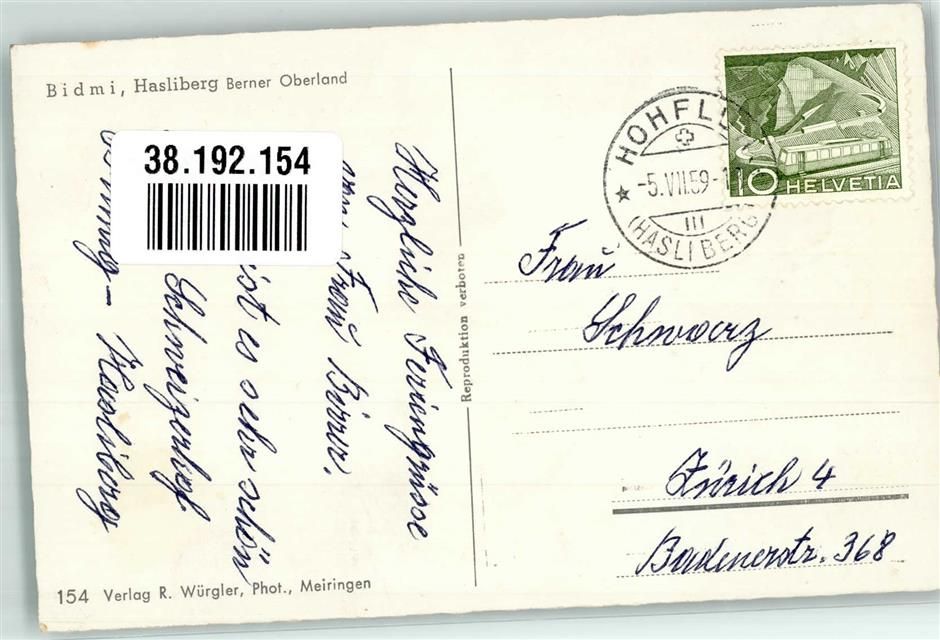 Bidmi, Hasliberg Berner Oberland
38.192.154
Herzliche Feriengrüsse
von Frau Birrer.
ist es sehr schön
Schweizerhof
Hasliberg
Reproduktion verboten
HOHFLUH
-5.VII.59-
III
(HASLIBERG)
10 HELVETIA
Frau
Schwarz
Zürich 4
Badenerstr. 368
154 Verlag R. Würgler, Phot., Meiringen